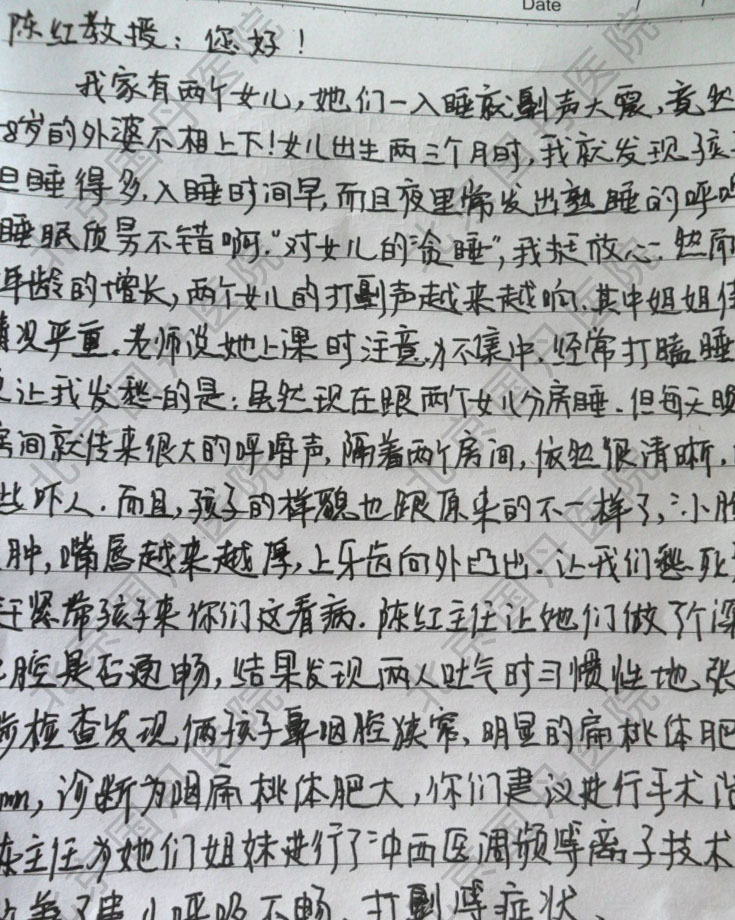 Date / /
陈红教授：您好！
我家有两个女儿，她们一入睡就鼾声大震，竟然
8岁的外婆不相上下！女儿出生两三个月时，我就发现孩
但睡得多，入睡时间早，而且夜里常发出熟睡的呼
睡眠质量不错啊，"对女儿的"贪睡"，我挺放心。然
年龄的增长，两个女儿的打鼾声越来越响，其中姐姐
情况严重，老师说她上课时注意力不集中，经常打瞌睡
让我发愁的是：虽然现在跟两个女儿分房睡，但每天晚
房间就传来很大的呼噜声，隔着两个房间，依然很清晰，
些吓人。而且，孩子的样貌也跟原来的不一样了，小
肿，嘴唇越来越厚，上牙齿向外凸出。让我们愁死
赶紧带孩子来你们这看病。陈红主任让她们做了个深
腔是否通畅，结果发现两人吐气时习惯性地张
检查发现俩孩子鼻咽腔狭窄，明显的扁桃体肥
mm，诊断为咽扁桃体肥大，你们建议进行手术治
主任为她们姐妹进行了"中西医调频等离子技术
善了患儿呼吸不畅、打鼾等症状
北京国丹医院